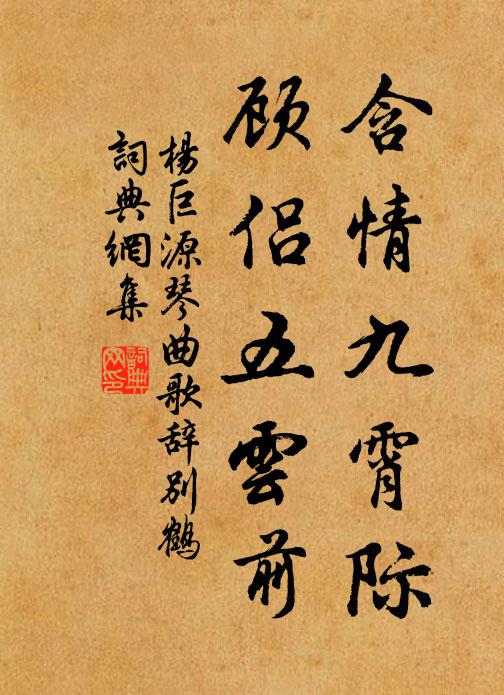 含情九霄际
顾侣五雲前
楊巨源琴曲歌辞别鶴
詞典網集
詞典網印